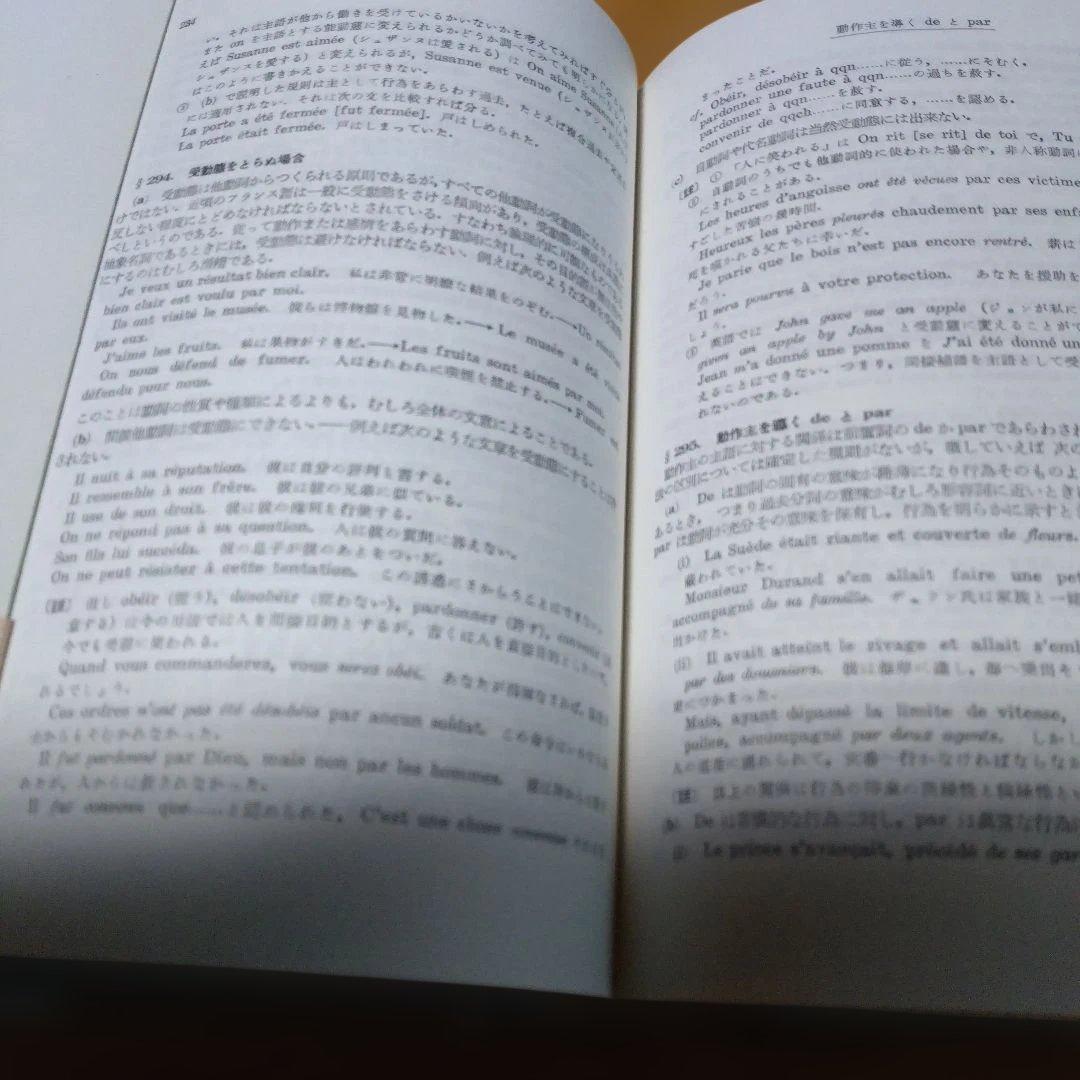 234
い．それは主語が他から働きを受けているかいないかを考えてみれば
また on を主語とする能動態に変えられるかどうか調べてみても明
えば Susanne est aimée (シュザンヌは愛される) は On aime Susanne
シュザンスを愛する) と変えられるが，Susanne est venue (シュザンヌ
はこのように書きかえることができない．
(b) で説明した規則は主として行為をあらわす過去，たとえば複合過去や
には適用されない．それは次の文を比較すれば分る．
La porte a été fermée [fut fermée]. 戸はしめられた．
La porte était fermée. 戸はしまっていた．
§ 294. 受動態をとらぬ場合
(a) 受動態は他動詞からつくられる原則であるが，すべての他動詞が受動態に
けではない．近頃のフランス語は一般に受動態をさける傾向があり，受動態の
反しない程度にとどめなければならないとされている．すなわち論理的に可能な
べしというのである．従って動作または感情をあらわす動詞に対し，その目的語が
抽象名詞であるときには，受動態は避けなければならない．例えば次のような文章を受動態
にするのはむしろ滑稽である．
Je veux un résultat bien clair. 私は非常に明瞭な結果をのぞむ．→Un résultat
bien clair est voulu par moi.
Ils ont visité le musée. 彼らは博物館を見物した．→ Le musée a été visité
par eux.
J'aime les fruits. 私は果物がすきだ．→Les fruits sont aimés par moi.
On nous défend de fumer. 人はわれわれに喫煙を禁止する．→Fumer est
défendu pour nous.
このことは動詞の性質や種類によるよりも，むしろ全体の文意によることである．
(b) 間接他動詞は受動態にできない．——例えば次のような文章を受動態にすることは
されない．
Il nuit à sa réputation. 彼は自分の評判を害する．
Il ressemble à son frère. 彼は彼の兄弟に似ている．
Il use de son droit. 彼は彼の権利を行使する．
On ne répond pas à sa question. 人は彼の質問に答えない．
Son fils lui succéda. 彼の息子が彼のあとをついだ．
On ne peut résister à cette tentation. この誘惑にさからうことはできない．
〔註〕 但し obéir (従う), désobéir (従わない), pardonner (許す), convenir
意する) は今の用法では人を間接目的とするが，古くは人を直接目的とした
今でも受動に使われる．
Quand vous commanderez, vous serez obéi. あなたが
れるでしょう．
Ces ordres n'ont pas été désobéis par aucun soldat. この命令は
からもそむかれなかった．
Il fut pardonné par Dieu, mais non par les hommes. 彼は神から
れたが，人からは赦されなかった．
Il fut convenu que……と認められた．C'est une chose convenue
動作主を導く de と par
まったことだ．
cf. Obéir, désobéir à qqn……に従う，……にそむく．
pardonner une faute à qqn……の過ちを赦す．
pardonner à qqn……を赦す．
convenir de qqch……に同意する，……を認める．
(c) 自動詞や代名動詞は当然受動態には出来ない．
〔註〕 ① 「人に笑われる」は On rit [se rit] de toi で，Tu
② 自動詞のうちでも他動詞的に使われた場合や，非人称動詞
にされることがある．
Les heures d'angoisse ont été vécues par ces victime
すごした苦悩の幾時間．
Heureux les pères pleurés chaudement par ses enf
死を嘆かれる父たちは幸いだ．
Je parie que le bois n'est pas encore rentré. 薪は
だろう．
Il sera pourvu à votre protection. あなたを援助
しょう．
③ 英語では John gave me an apple (ジョンが私に
given an apple by John と受動態に変えることがで
Jean m'a donné une pomme を J'ai été donné un
えることはできない．つまり，間接補語を主語として受
れないのである．
§ 295. 動作主を導く de と par
動作主の主語に対する関係は前置詞の de か par であらわされ
彼の区別については確定した規則がないが，強していえば 次の
(a) De は動詞の固有の意味が稀薄になり行為そのものよ
あるとき，つまり過去分詞の意味がむしろ形容詞に近いとき
par は動詞が充分その意味を保有し，行為を明らかに示すと
(i) La Suède était riante et couverte de fleurs.
蔽われていた．
Monsieur Durand s'en allait faire une pet
accompagné de sa famille. デュラン氏は家族と一緒
出かけた．
(ii) Il avait atteint le rivage et allait s'emb
par des douaniers. 彼は海岸に達し，海へ乗出そ
吏につかまった．
Mais, ayant dépassé la limite de vitesse,
police, accompagné par deux agents. しかし
人の巡査に連れられて，交番へ行かなければならなか
〔註〕
(b) De は習慣的な行為に対し，par は異常な行為に
(i) Le prince s'avançait, précédé de ses gar